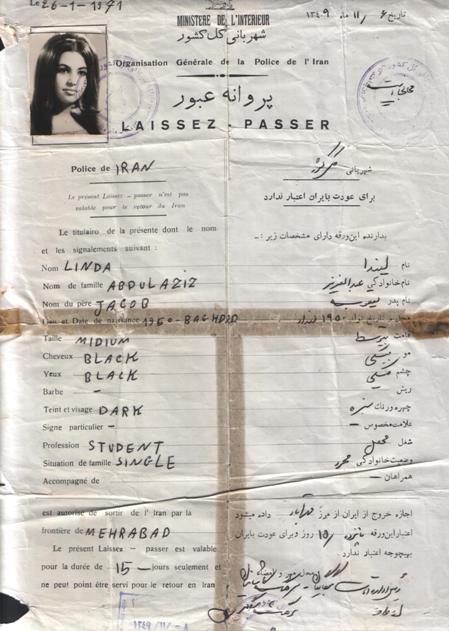 Le 26-1-1971
تاریخ ۶ / ۱۱ ماه ۱۳۴۹
MINISTERE DE L'INTERIEUR
شهربانی کل کشور
Organisation Générale de la Police de l'Iran
پروانه عبور
LAISSEZ-PASSER
Police de IRAN
شهربانی
Le present Laissez-passer n'est pas
valable pour le retour du Iran
برای عودت بایران اعتبار ندارد
Le titulaire de la présente dont le nom
et les signalements suivant :
بدارنده این ورقه دارای مشخصات زیر :-
Nom LINDA
نام لیندا
Nom de famille ABDUL AZIZ
نام خانوادگی عبدالعزیز
Nom du père JACOB
نام پدر
Lieu et Date de naissance 1950-BAGHDAD
Taille MIDIUM
قامت متوسط
Cheveux BLACK
مو مشکی
Yeux BLACK
چشم مشکی
Barbe -
ریش -
Teint et visage DARK
چهره و رنگ سبزه
Signe particulier -
علامت مخصوص -
Profession STUDENT
شغل محصل
Situation de famille SINGLE
وضعیت خانوادگی مجرد
Accompagné de
همراهان -
est autorisé de sortir de l'Iran par la
frontière de MEHRABAD
اجازه خروج از ایران از مرز مهرآباد داده میشود
Le présent Laissez-passer est valable
pour la durée de 15-jours seulement et
ne peut point être servi pour le retour en Iran
اعتبار این ورقه ۱۵ روز و برای عودت بایران
بهیچوجه اعتبار ندارد.